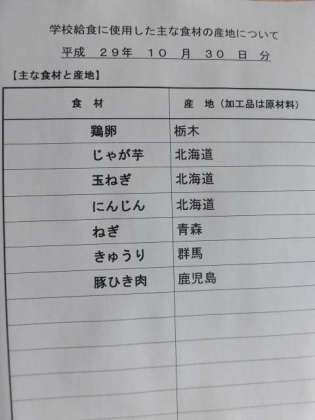 学校給食に使用した主な食材の産地について
平成 29年 10 月 30 日 分
【主な食材と産地】
食 材 産 地（加工品は原材料）
鶏卵 栃木
じゃが芋 北海道
玉ねぎ 北海道
にんじん 北海道
ねぎ 青森
きゅうり 群馬
豚ひき肉 鹿児島